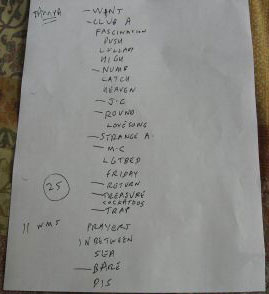 - WANT
- CLUB A
FASCINATION
PUSH
LULLABY
HIGH
- NUMB
CATCH
HEAVEN
- J.C
- ROUND
LOVESONG
- STRANGE A.
- M.C
LGTBED
FRIDAY
- RETURN
- TREASURE
COCKATOOS
- TRAP
25
11 WMS PRAYERS
INBETWEEN
SEA
- BARE
DIS